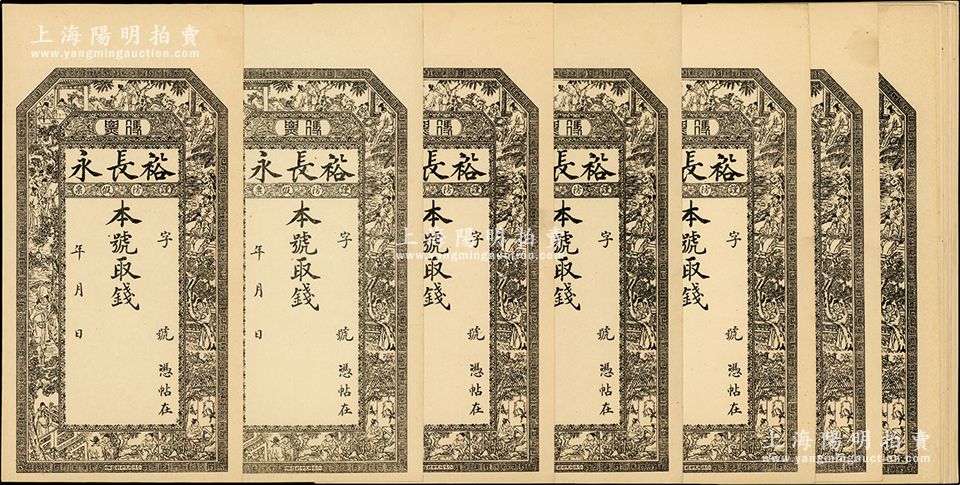 上海陽明拍賣
www.yangmingauction.com
裕長永
謹防假票
字 號 憑帖在
本號取錢
年 月 日
裕長永
謹防假票
字 號 憑帖在
本號取錢
年 月 日
裕長
謹防
字 號 憑帖在
本號取錢
裕長
謹防
字 號 憑帖在
本號取錢
裕長
謹防
字 號 憑帖在
本號取錢
上海陽明拍賣
www.yangmingauction.com
上海陽明拍賣
www.yangmingauction.com